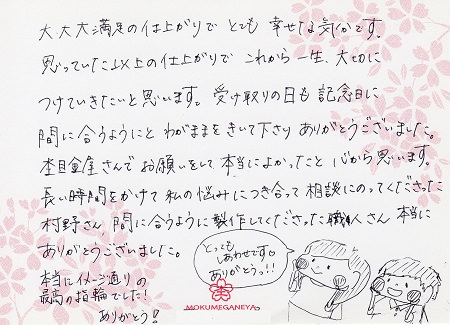 大大大満足の仕上がりで とても 幸せな気分です。
思っていた以上の仕上がりで これから一生、大切に
つけていきたいと思います。受け取りの日も 記念日に
間に合うようにと わがままをきいて下さり ありがとうございました。
杢目金屋さんで お願いをして 本当によかったと 心から思います。
長い時間をかけて 私の悩みにつき合って 相談にのってくださった
村野さん 間に合うように製作してくださった職人さん 本当に
ありがとうございました。
本当にイメージ通りの
最高の指輪でした!
ありがとう!
とっても
しあわせです。
ありがとうっ!!
MOKUMEGANEYA